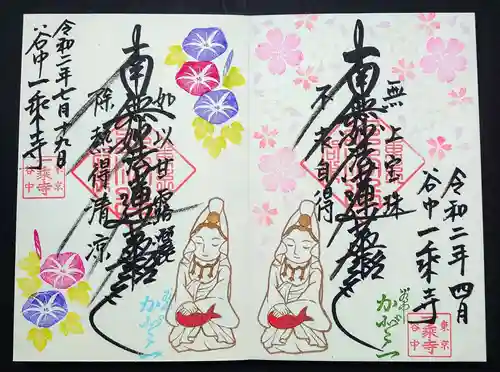 無上宝珠
南無妙法蓮華経
不求自得
令和二年四月
谷中一乗寺
東京
一乗寺
谷中
如以甘露灑
南無妙法蓮華経
除熱得清涼
令和二年七月十九日
谷中一乗寺
東京
一乗寺
谷中